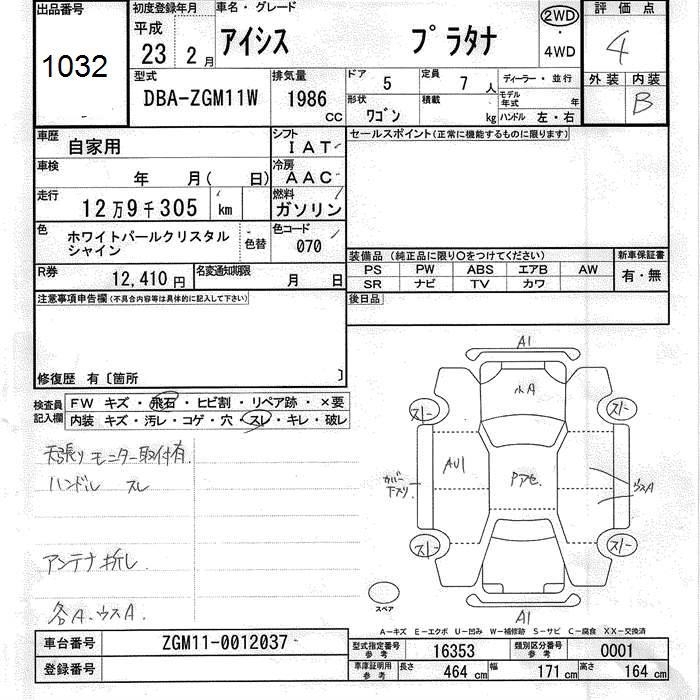 出品番号
1032
初度登録年月
平成
23年 2月
車名・グレード
アイシス プラタナ
2WD
・
4WD
評価点
4
外装 内装
B
型式
DBA-ZGM11W
排気量
1986
CC
ドア 5
定員 7 人
形状 ワゴン
積載 kg
ディーラー・並行
モデル年式 年
ハンドル 左・右
車歴
自家用
シフト
IAT
車検
年 月( 日)
冷房
AAC
走行
12万9千305 km
燃料
ガソリン
色
ホワイトパールクリスタル
シャイン
色替
色コード
070
R券
12,410円
名変通知期限
月 日
セールスポイント(正常に機能するものに限ります)
装備品(純正品に限り○をつけてください)
PS PW ABS エアB AW
SR ナビ TV カワ
新車保証書
有・無
後日品
注意事項申告欄(不具合内容等は具体的に記入して下さい)
修復歴 有〔箇所 〕
検査員
記入欄
FW キズ・飛石・ヒビ割・リペア跡・×要
内装 キズ・汚レ・コゲ・穴・スレ・キレ・破レ
天張り モニター取付有
ハンドル スレ
アンテナ折レ
各A.ウスA.
A1
小A
スレー
スレー
AU1
Pアセ.
カバー
下スリ
ウスA
スレー
スレー
スペア
A1
A-キズ E-エクボ U-凹み W-補修跡 S-サビ C-腐食 XX-交換済
車台番号
ZGM11-0012037
登録番号
型式指定番号
参考
16353
類別区分番号
参考
0001
車庫証明用
参考
長さ 464 cm 幅 171 cm 高さ 164 cm